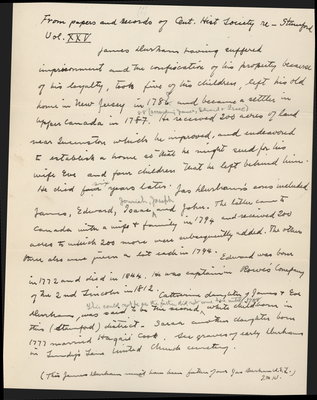 From papers and records of Ont. Hist Society re - Stamford
Vol. XXV
James Durham having suffered
imprisonment and the confiscation of his property because
of his loyalty, took five of his children, left his old
home in New Jersey in 1786 and became a settler in
Upper Canada in 1787. He received 200 acres of land
near Queenston which he improved, and endeavored
to establish a home so that he might send for his
wife Eve and four children that he left behind him.
He died four years later. Jas Durham's sons included
James, Edward, Isaac, and John. The latter came to
Canada with a wife & family in 1794 and received 200
acres to which 200 more were subsequently added. The others
three also were given a lot each in 1794. Edward was born
in 1772 and died in 1844. He was captain in Rowe's Company
of the 2nd Lincoln in 1812.
Catherine daughter of James & Eve
Durham, was said to be the second white child born in
this (Stamford) district - Sarah another daughter born
1777 married Hagait Cook. See graves of early Durhams
in Lundy's Lane United Church cemetery.
(This James Durham must have been father of our Jas Durham U.E.L.)